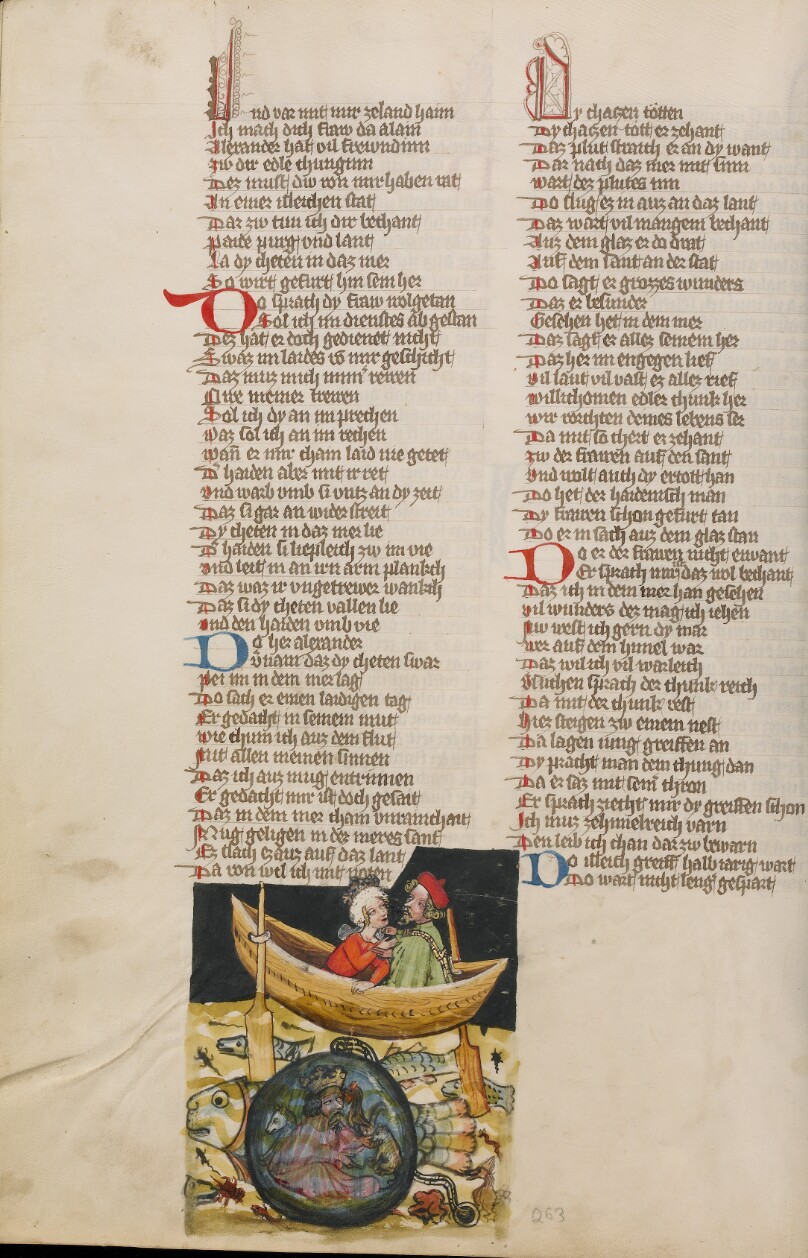 Und var mit mir ze land haim
Ich mach dich fraw da alain
Alexander hat vil frewndinn
Zw dir edle chunginn
Dez must dw von mir haben rat
In einer isleichen stat
Dar zw tun ich dir bechant
Paide purg vnd lant
La dy cheten in daz mer
So wirt gefurt hin sein her
Do sprach dy fraw wolgetan
Sol ich im dienstes ab gestan
Dez hat er doch gedienet nicht
Swaz im laides von mir geschicht
Daz muz mich rewen
meiner trewen
Sol ich dy an im prechen
Waz sol ich an im rechen
wan er mir cham laid nie getet
haiden aber mit ir ret
Vnd warb vmb si vntz an dy zeit
Daz si gar an wider streit
Dy cheten in daz mer lie
haiden si liepleich zw im vie
Vnd leit in an irn arm planch
Daz waz ir vngetrewer wanch
Daz si dy cheten vallen lie
Vnd den haiden vmb vie
Do her alexander
Vernam daz dy cheten swar
Pei im in dem mer lag
Do sach er einen laidigen tag
Er gedacht in seinem mut
wie chum ich auz dem flut
Mit allen meinen sinnen
Daz ich auz mug entrinnen
Er gedacht mir ist doch gesait
Daz in dem mer cham vnrainchait
Mug geligen in dez meres sant
Ez slach ez auz auf daz lant
Da von wil ich mit
Dy chaczen tötten
Dy chaczen tött er zehant
Daz plut straich er an dy want
Dar nach daz mer mit
wart dez plutes inn
Do slug ez in auz an daz lant
Daz wart vil mangem bechant
Auz dem glaz er do drat
Auf dem sant an der stat
Do sagt er grozzes wunders
Daz er besunder
Gesehen het in dem mer
Daz sagt er allez seinem her
Daz her im engegen lief
Vil laut vil vast ez allez rief
willichomen edler chunk her
wir vorchten deines lebens ser
Da mit so chert er zehant
Zw der frawen auf den sant
Vnd wolt auch dy ertött han
Do het der haidenisch man
Dy frawen schon gefurt dan
Do er in sach auz dem glaz stan
Do er der frawen nicht envant
Er sprach nw daz wol bechant
Daz ich in dem mer han gesehen
Vil wunders dez mag ich iehen
Nw west ich gern dy mar
wer auf dem himel war
Daz wil ich vil warleich
Versuchen sprach der chunk reich
Da mit der chunk vest
Hiez steigen zw einem nest
Da lagen iung greiffen an
Dy pracht man dem chung dan
Da er saz mit seim thron
Er sprach ziecht mir dy greiffen schon
Ich muz ze himelreich varn
Den leib ich chan dar zw bewarn
Do isleich greiff halb iarig wart
Do wart nicht leng gespart
263